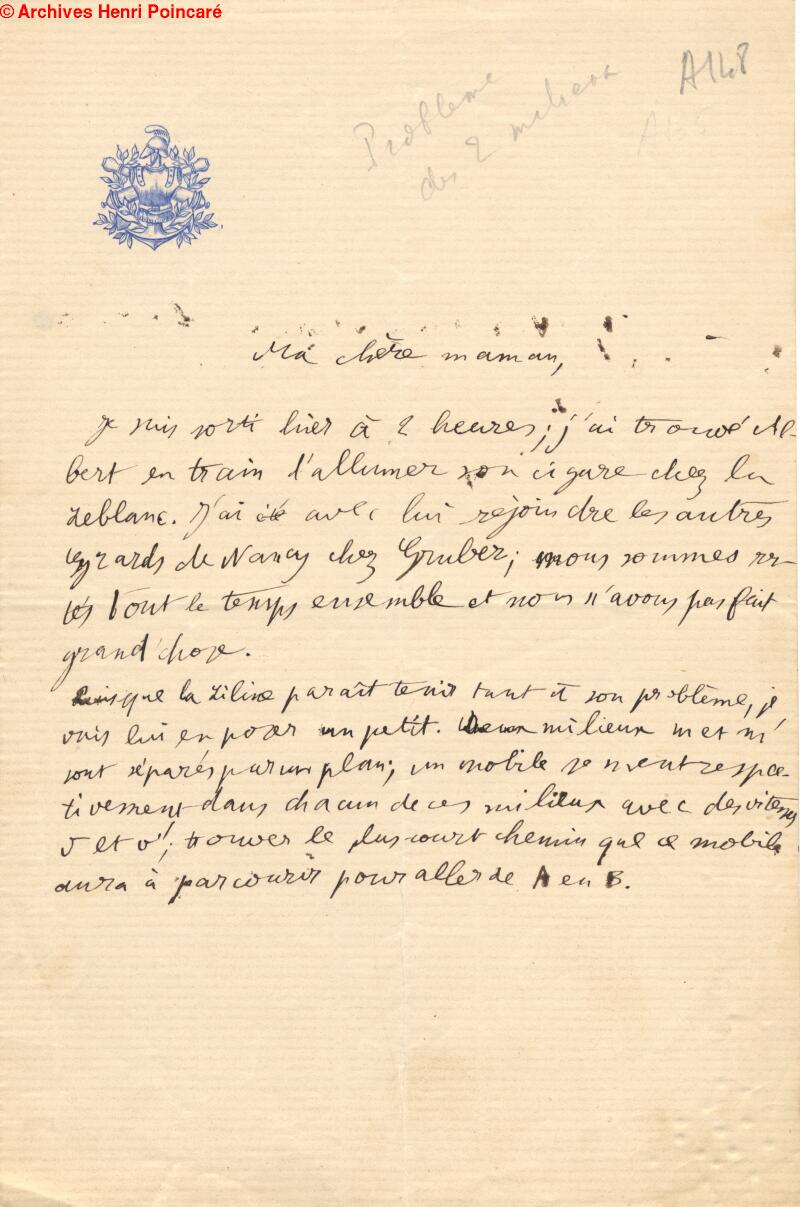 © Archives Henri Poincaré
A148
A145
Problème
des 2 milieux
Ma chère maman,
Je suis sorti hier à 2 heures; j'ai trouvé Al-
bert en train d'allumer son cigare chez la
Leblanc. J'ai été avec lui rejoindre les autres
de Nancy chez Gruber; nous sommes res-
tés tout le temps ensemble et nous n'avons pas fait
grand'chose.
Puisque la Liline paraît tenir tant à son problème, je
vais lui en poser un petit. Deux milieux m et m'
sont séparés par un plan; un mobile se meut respec-
tivement dans chacun de ces milieux avec des vitesses
v et v'; trouver le plus court chemin que ce mobile
aura à parcourir pour aller de A en B.